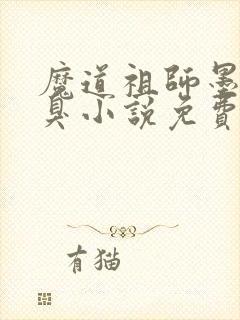 魔道祖師墨
臭小說免費
有猫